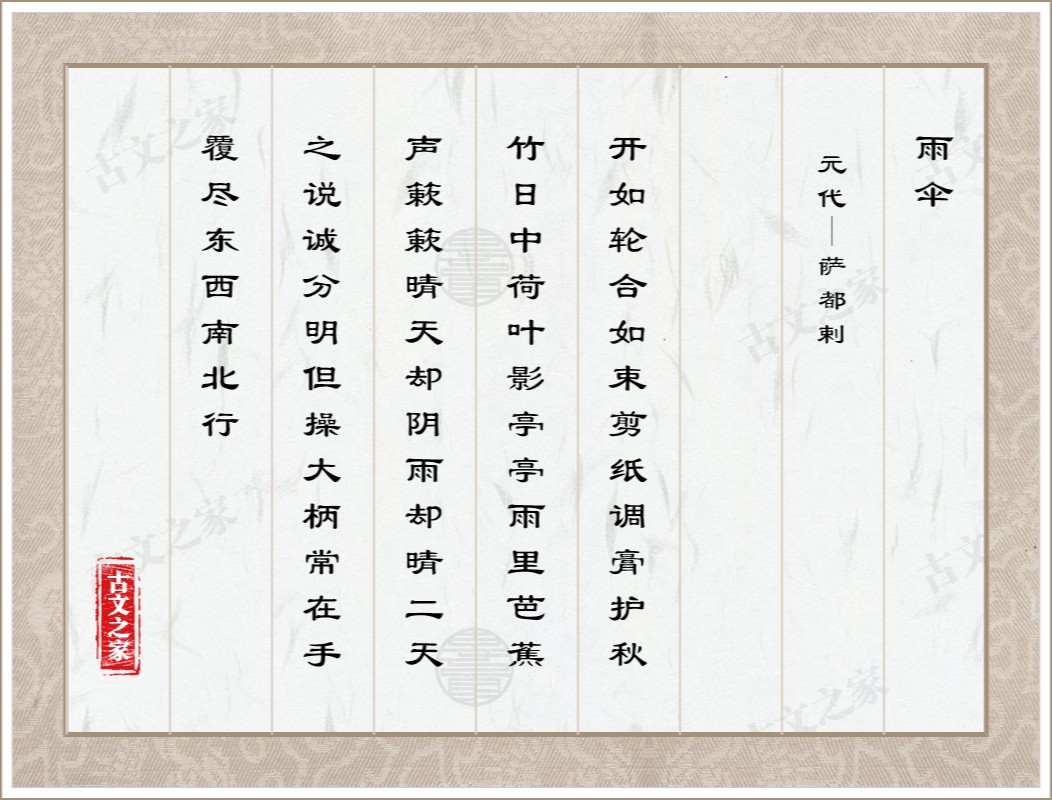 雨伞
元代—萨都剌
开如轮合如束剪纸调膏护秋
竹日中荷叶影亭亭雨里芭蕉
声簌簌晴天却阴雨却晴二天
之说诚分明但操大柄常在手
覆尽东西南北行
古文之家
古文之家
古文之家
古文之家
古文之家
古文之家